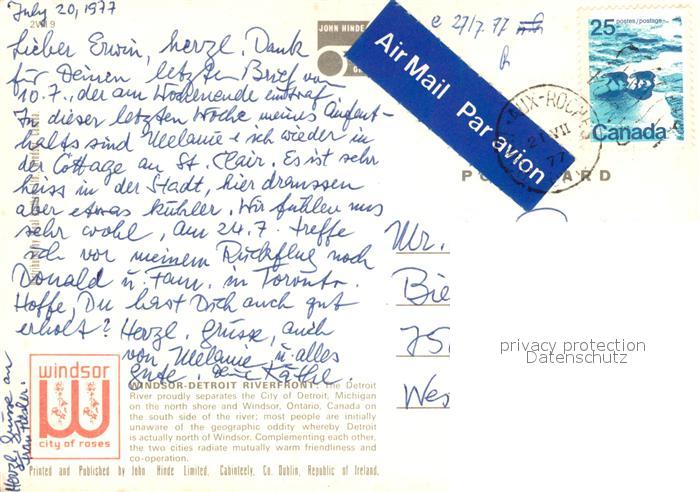 July 20, 1977
Lieber Erwin, herzl. Dank
für Deinen letzten Brief vom
10.7., der am Wochenende eintraf
In dieser letzten Woche meines Aufent-
halts sind Melanie & ich wieder in
der Cottage am St. Clair. Es ist sehr
heiss in der Stadt, hier draussen
aber etwas kühler. Wir fühlen uns
sehr wohl, am 24.7. treffe
ich vor meinem Rückflug noch
Donald u. Fam. in Toronto.
Hoffe, Du hast Dich auch gut
erholt? Herzl. Grüsse, auch
von Melanie u. alles
Gute, Deine Käthe.
Herzl. Grüsse an
Frau
2V 9
JOHN HINDE
e 27/7. 77
Air Mail Par avion
25 postes/postage
Canada
AUX-ROCHES
21 VII
77
POSTCARD
Mr.
Bie
75
Wes
privacy protection
Datenschutz
windsor
city of roses
WINDSOR-DETROIT RIVERFRONT. The Detroit
River proudly separates the City of Detroit, Michigan
on the north shore and Windsor, Ontario, Canada on
the south side of the river; most people are initially
unaware of the geographic oddity whereby Detroit
is actually north of Windsor. Complementing each other,
the two cities radiate mutually warm friendliness and
co-operation.
Printed and Published by John Hinde Limited, Cabinteely, Co. Dublin, Republic of Ireland.